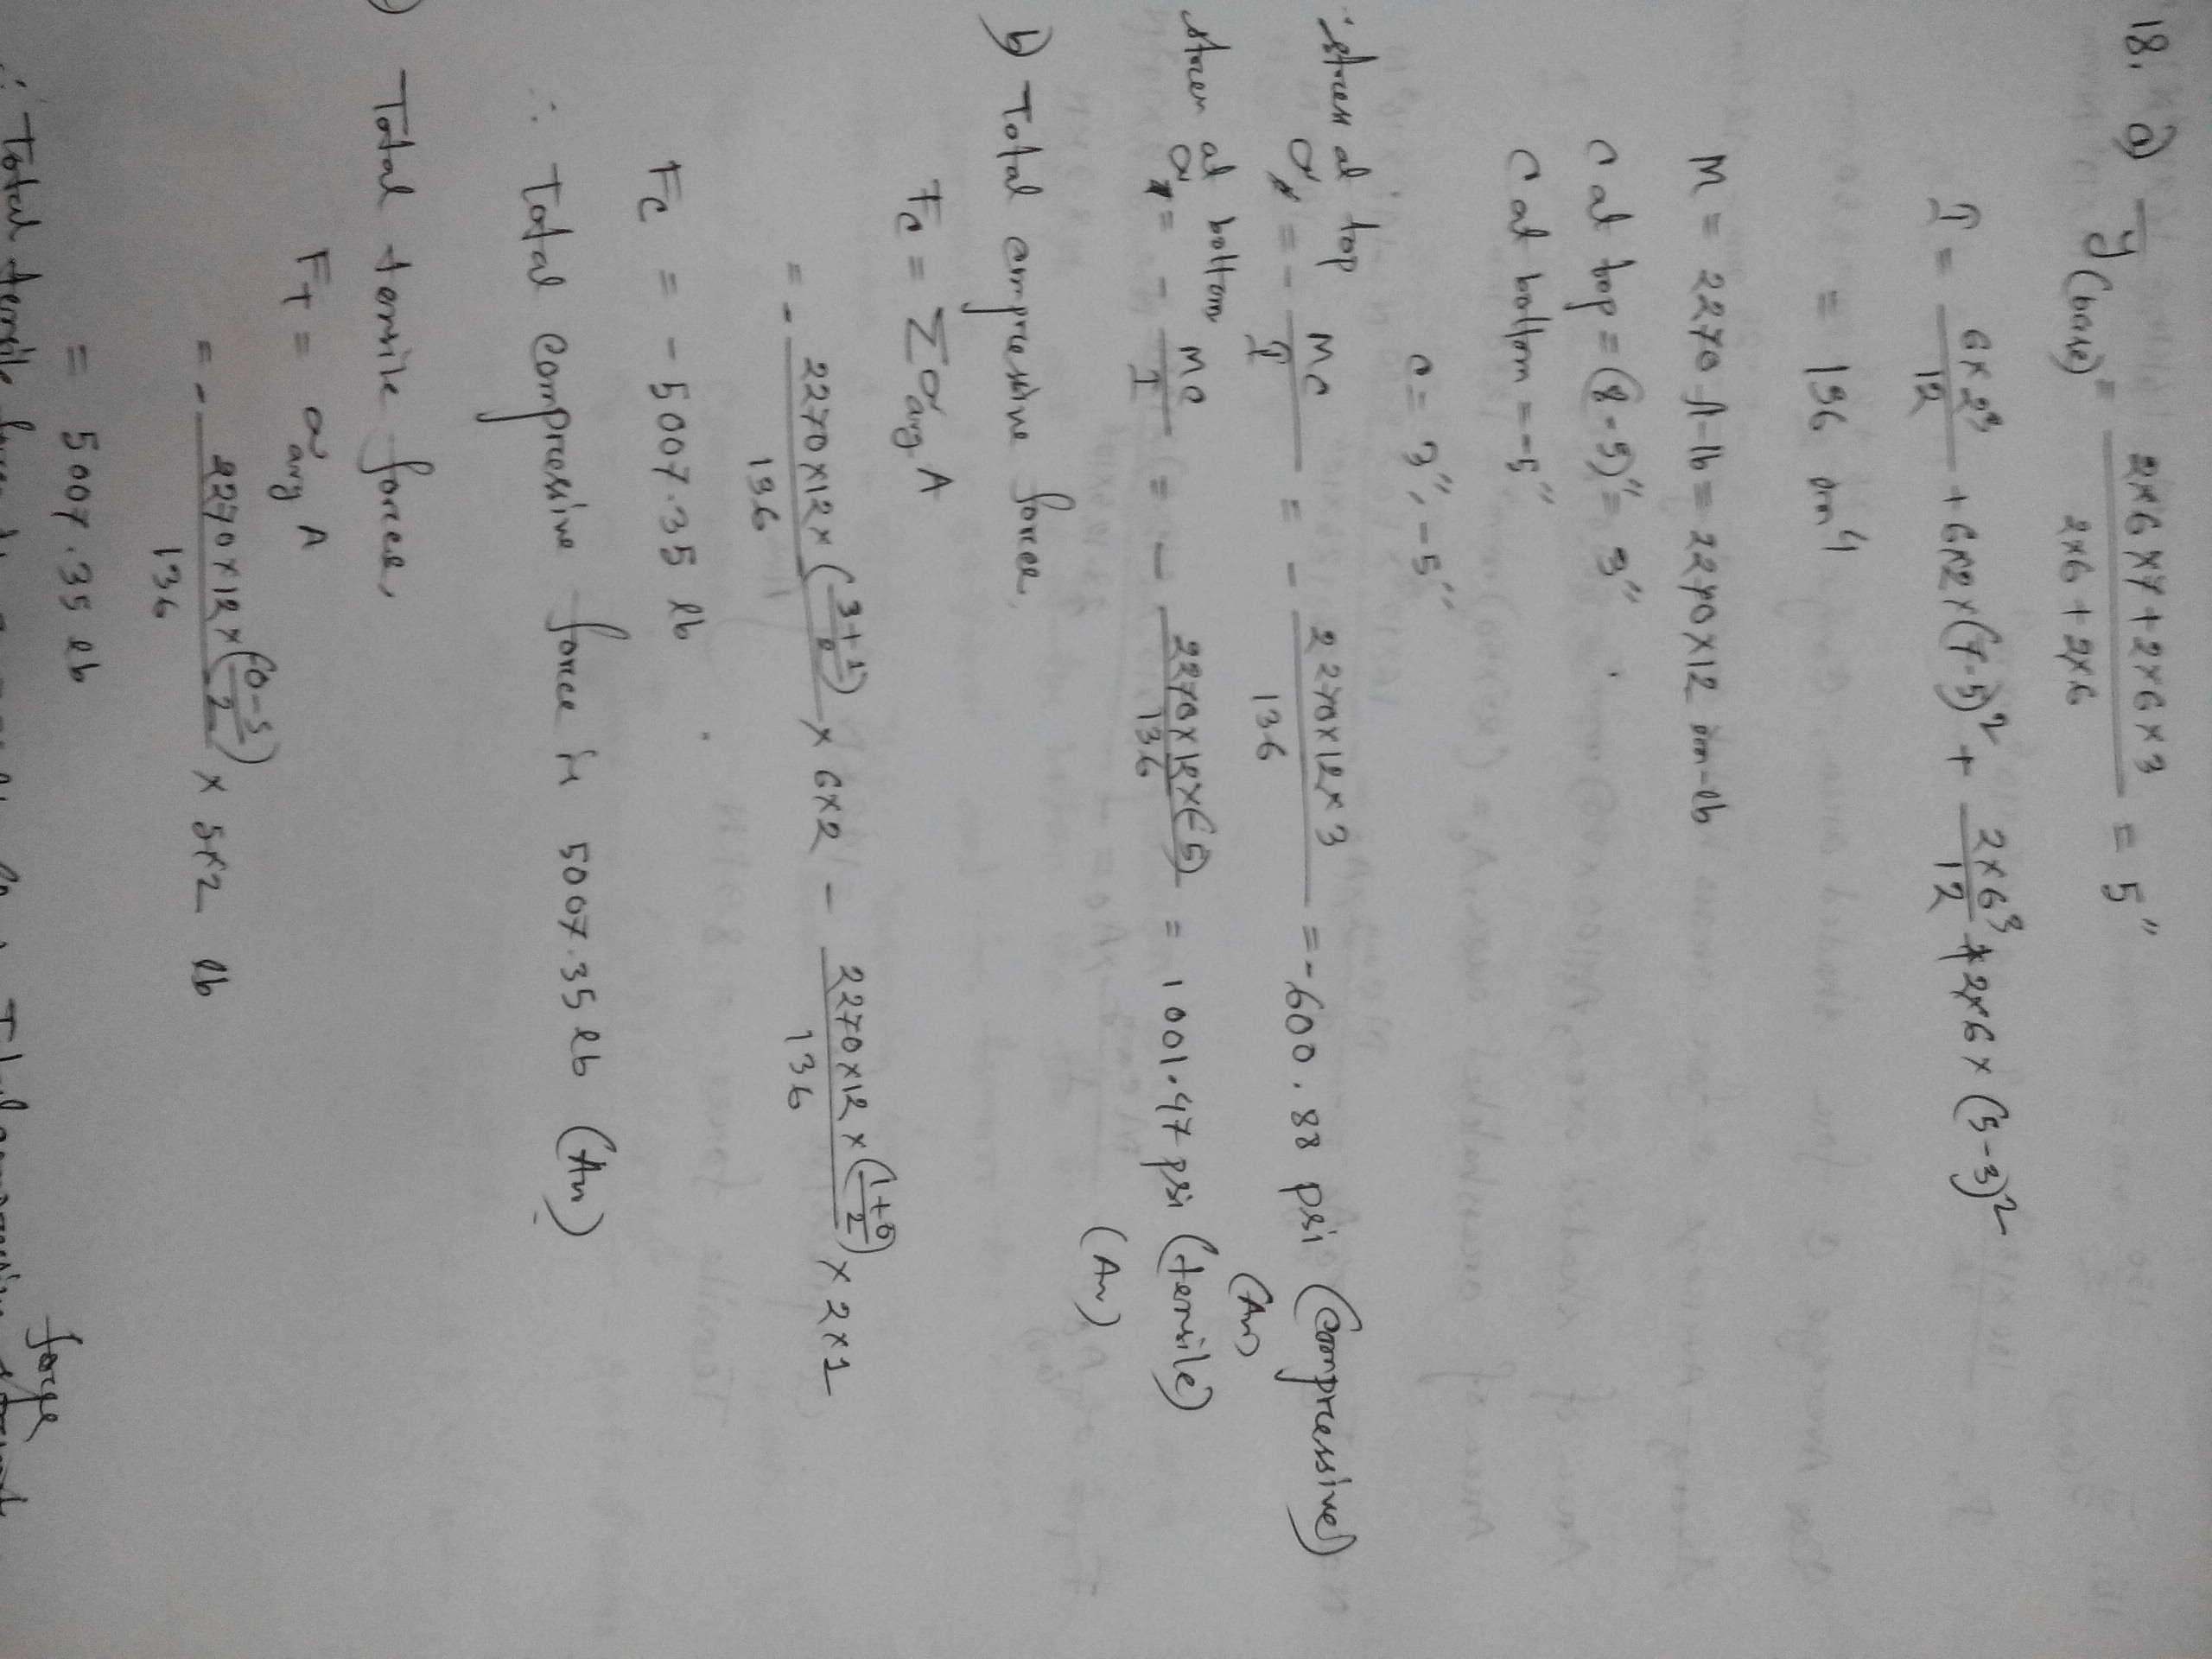 18. a) y̅(base) = (2×6×7+2×6×3)/(2×6+2×6) = 5"
I = 6×2³/12 + 6×2×(7-5)² + 2×6³/12 + 2×6×(5-3)²
= 136 in⁴
M = 2270 ft-lb = 2270×12 in-lb
C at top = (8-5)" = 3"
C at bottom = -5"
c = 3", -5"
∴ stress at top
σ = - Mc/I = - 2270×12×3/136 = -600.88 psi (compressive) (An)
stress at bottom
σ = - Mc/I = - 2270×12×(-5)/136 = 1001.47 psi (tensile) (An)
b) Total compressive force,
Fc = Σσavg A
= - 2270×12×((3+1)/2)/136 × 6×2 - 2270×12×((1+0)/2)/136 × 2×1
Fc = -5007.35 lb
∴ Total compressive force is 5007.35 lb (An)
) Total tensile force,
FT = σavg A
= - 2270×12×((0-5)/2)/136 × 5×2 lb
= 5007.35 lb
force
∴ Total tensile